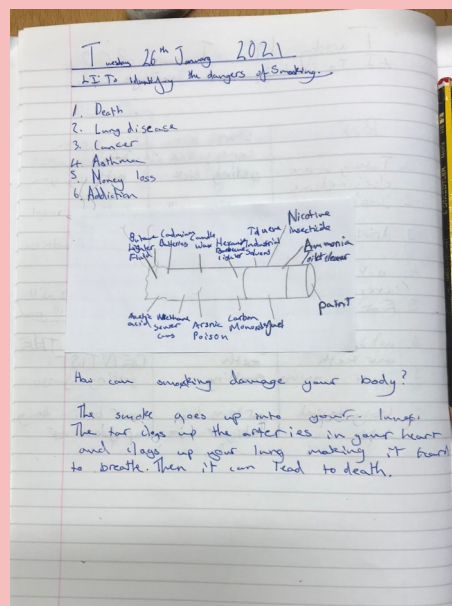 Tuesday 26th January 2021
LI To identify the dangers of Smoking.
1. Death
2. Lung disease
3. Cancer
4. Asthma
5. Money loss
6. Addiction
Butane Lighter Fluid
Cadmium Batteries
Candle Wax
Lighter
Industrial Solvent
Nicotine insecticide
Ammonia toilet cleaner
paint
Acetic acid
Methane sewer Gas
Arsnic Poison
Carbon Monoxide
How can smoking damage your body?
The smoke goes up into your lungs.
The tar clogs up the arteries in your heart
and clags up your lung making it hard
to breath. Then it can lead to death.